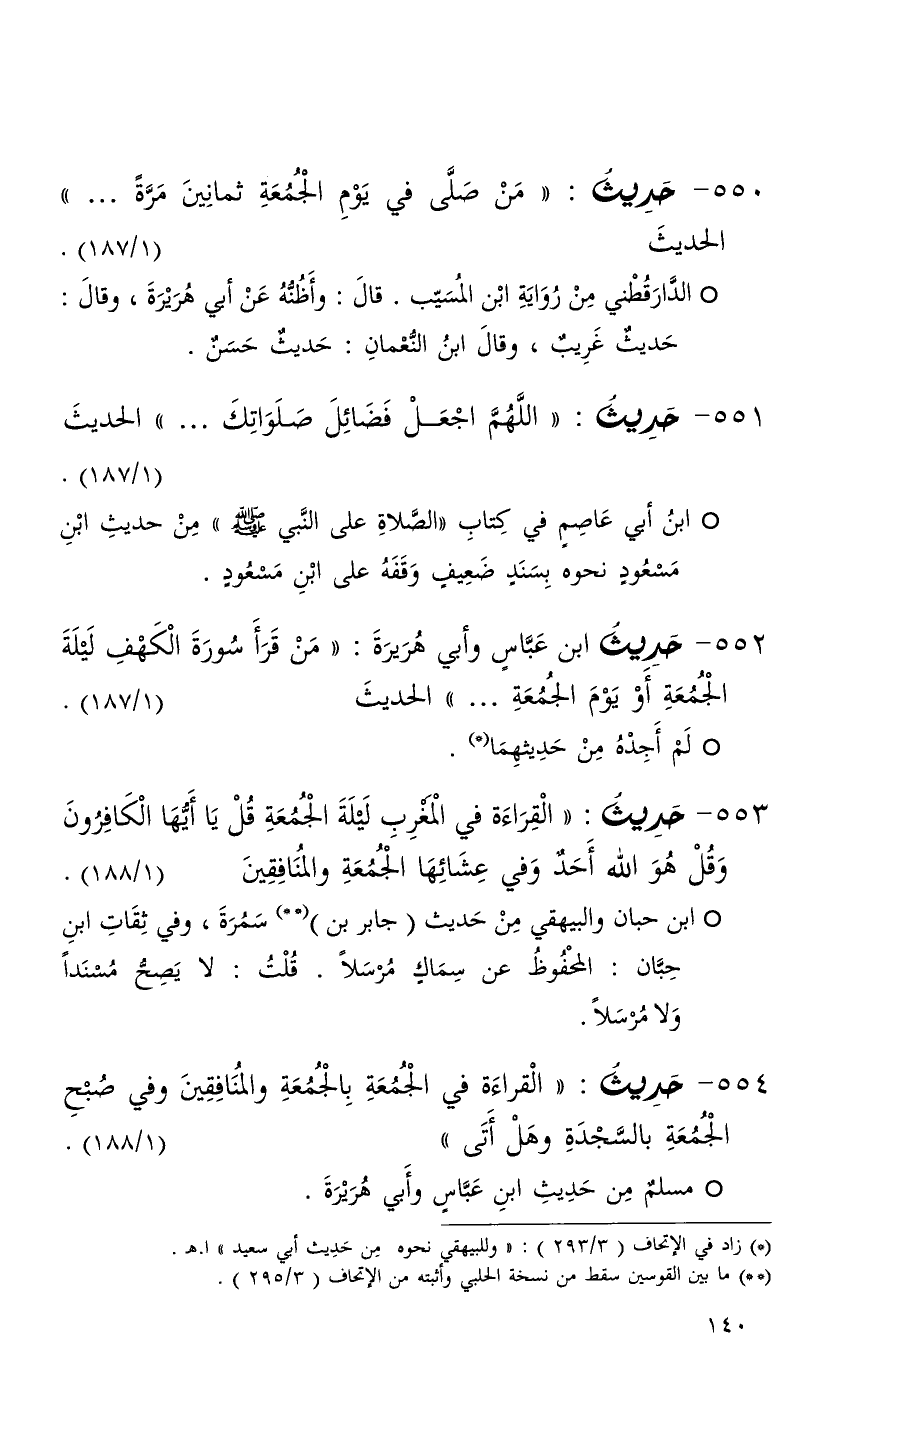 ٥٥٠- حَدِيثُ : « مَنْ صَلَّى في يَوْمِ الجُمُعَةِ ثمانِينَ مَرَّةً ... »
الحديثَ (١٨٧/١) .
○ الدَّارَقُطْني مِنْ رُوَايَةِ ابْن المُسَيّب . قالَ : وأَظُنُّهُ عَنْ أبي هُرَيْرَةَ ، وقالَ :
حَديثٌ غَرِيبٌ ، وقالَ ابنُ النُّعْمانِ : حَديثٌ حَسَنٌ .
٥٥١- حَدِيثُ : « اللَّهُمَّ اجْعَلْ فَضَائِلَ صَلَوَاتِكَ ... » الحديثَ
(١٨٧/١) .
○ ابنُ أبي عَاصِمٍ في كِتابِ «الصَّلاةِ على النَّبي ﷺ » مِنْ حديثِ ابْنِ
مَسْعُودٍ نحوه بِسَنَدٍ ضَعِيفٍ وَقَفَهُ على ابْنِ مَسْعُودٍ .
٥٥٢- حَدِيثُ ابن عَبَّاسٍ وأبي هُرَيرَةَ : « مَنْ قَرَأَ سُورَةَ الْكَهْفِ لَيْلَةَ
الجُمُعَةِ أَوْ يَوْمَ الجُمُعَةِ ... » الحديثَ (١٨٧/١) .
○ لَمْ أَجِدْهُ مِنْ حَدِيثهِمَا(*) .
٥٥٣- حَدِيثُ : « الْقِرَاءَة في الْمَغْرِبِ لَيْلَةَ الجُمُعَةِ قُلْ يَا أَيُّهَا الْكَافِرُونَ
وَقُلْ هُوَ الله أَحَدٌ وَفي عِشَائِهَا الجُمُعَةِ والمُنَافِقِينَ (١٨٨/١) .
○ ابن حبان والبيهقي مِنْ حَديث ( جابر بن )(**) سَمُرَةَ ، وفي ثِقَاتِ ابنِ
حِبَّان : المَحْفُوظُ عن سِمَاكٍ مُرْسَلاً . قُلْتُ : لا يَصِحُّ مُسْنَداً
وَلا مُرْسَلاً .
٥٥٤- حَدِيثُ : « الْقراءَة في الجُمُعَةِ بِالجُمُعَةِ والمُنَافِقِينَ وفي صُبْحِ
الجُمُعَةِ بالسَّجْدَةِ وهَلْ أَتَى » (١٨٨/١) .
○ مسلمٌ مِن حَدِيثِ ابنِ عَبَّاسٍ وأَبي هُرَيْرَةَ .
(*) زاد في الإتحاف ( ٢٩٣/٣ ) : « وللبيهقي نحوه مِن حَدِيث أبي سعيد » ا.هـ .
(**) ما بين القوسين سقط من نسخة الحلبي وأثبته من الإتحاف ( ٢٩٥/٣ ) .
١٤٠